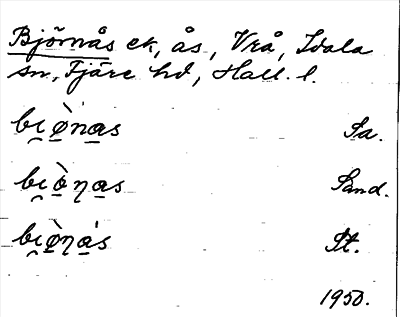 Björnås ek, ås, Vrå, Idala
sn., Fjäre hd, Hall. l.
bɩ̯ø̀nas Sa.
bɩ̯ø̀ŋas Sand.
bɩ̯ø̀ŋás St.
1950.